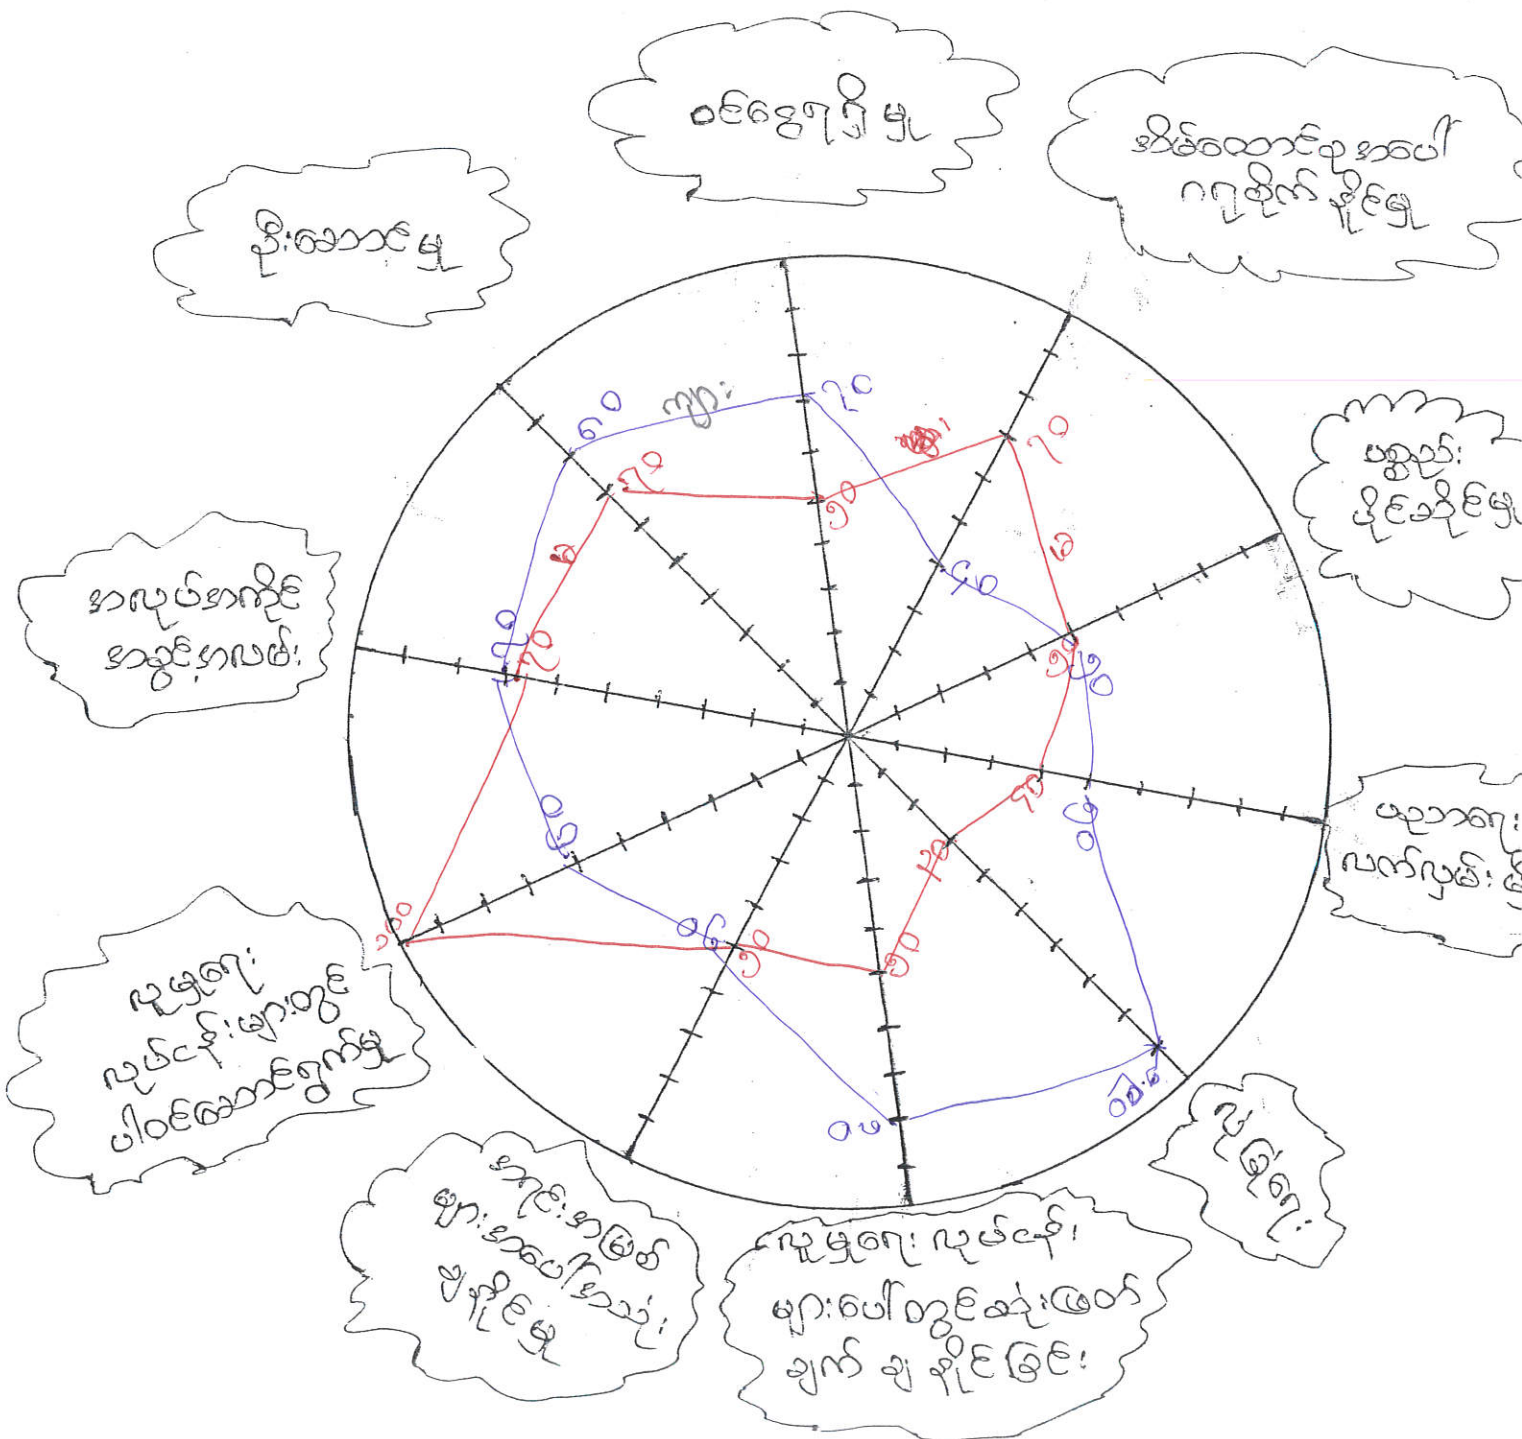 ဝင်ငွေရရှိမှု
အိမ်ထောင်စုအပေါ်
ဂရုစိုက်နိုင်မှု
ဦးဆောင်မှု
ပစ္စည်း
ပိုင်ဆိုင်မှု
အလုပ်အကိုင်
အခွင့်အလမ်း
ပညာရေး
လက်လှမ်းမှီ
လူမှုရေး
လုပ်ငန်းများတွင်
ပါဝင်ဆောင်ရွက်မှု
အရင်းအမြစ်
များအပေါ်အသုံး
ချနိုင်မှု
လူမှုရေး လုပ်ငန်း
များပေါ်တွင်ဆုံးဖြတ်
ချက် ချ နိုင်ခြင်း
လုံခြုံရေး
ကျား
၇၀
၈၀
၇၀
၅၀
၇၀
မ
မ
၄၀
၅၀
၅၀
၇၀
၇၀
၆၀
၅၀
၄၀
၃၀
၅၀
၈၀
၅၀
၅၀
၁၀၀